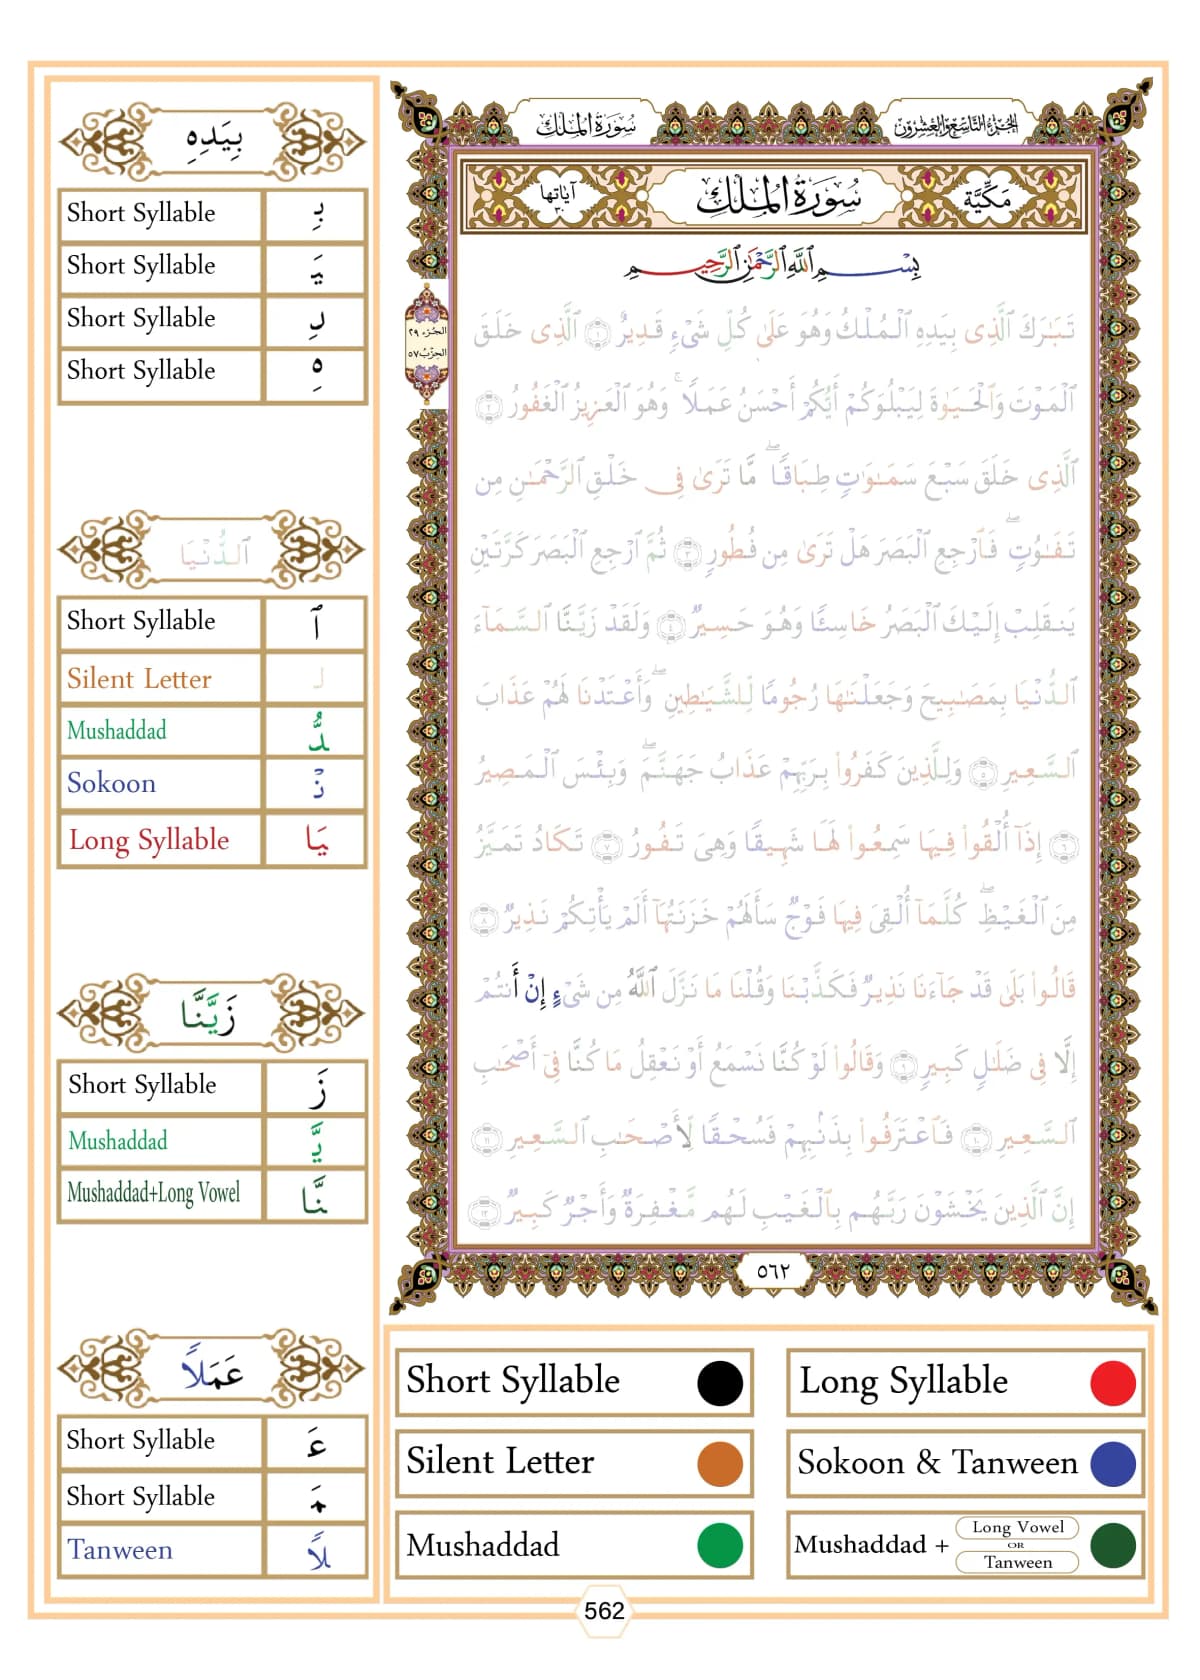 سُورَةُ المُلْكِ
الجُزْءُ التَّاسِعُ وَالعِشْرُونَ
مَكِّيَّة
سُورَةُ المُلْكِ
آيَاتُهَا ٣٠
بِسْمِ ٱللَّهِ ٱلرَّحْمَٰنِ ٱلرَّحِيمِ
الجزء ٢٩
الحزب ٥٧
تَبَٰرَكَ ٱلَّذِى بِيَدِهِ ٱلْمُلْكُ وَهُوَ عَلَىٰ كُلِّ شَىْءٍ قَدِيرٌ ١ ٱلَّذِى خَلَقَ
ٱلْمَوْتَ وَٱلْحَيَوٰةَ لِيَبْلُوَكُمْ أَيُّكُمْ أَحْسَنُ عَمَلًا ۚ وَهُوَ ٱلْعَزِيزُ ٱلْغَفُورُ ٢
ٱلَّذِى خَلَقَ سَبْعَ سَمَٰوَٰتٍ طِبَاقًا ۖ مَّا تَرَىٰ فِى خَلْقِ ٱلرَّحْمَٰنِ مِن
تَفَٰوُتٍ ۖ فَٱرْجِعِ ٱلْبَصَرَ هَلْ تَرَىٰ مِن فُطُورٍ ٣ ثُمَّ ٱرْجِعِ ٱلْبَصَرَ كَرَّتَيْنِ
يَنقَلِبْ إِلَيْكَ ٱلْبَصَرُ خَاسِئًا وَهُوَ حَسِيرٌ ٤ وَلَقَدْ زَيَّنَّا ٱلسَّمَآءَ
ٱلدُّنْيَا بِمَصَٰبِيحَ وَجَعَلْنَٰهَا رُجُومًا لِّلشَّيَٰطِينِ ۖ وَأَعْتَدْنَا لَهُمْ عَذَابَ
ٱلسَّعِيرِ ٥ وَلِلَّذِينَ كَفَرُوا۟ بِرَبِّهِمْ عَذَابُ جَهَنَّمَ ۖ وَبِئْسَ ٱلْمَصِيرُ
٦ إِذَآ أُلْقُوا۟ فِيهَا سَمِعُوا۟ لَهَا شَهِيقًا وَهِىَ تَفُورُ ٧ تَكَادُ تَمَيَّزُ
مِنَ ٱلْغَيْظِ ۖ كُلَّمَآ أُلْقِىَ فِيهَا فَوْجٌ سَأَلَهُمْ خَزَنَتُهَآ أَلَمْ يَأْتِكُمْ نَذِيرٌ ٨
قَالُوا۟ بَلَىٰ قَدْ جَآءَنَا نَذِيرٌ فَكَذَّبْنَا وَقُلْنَا مَا نَزَّلَ ٱللَّهُ مِن شَىْءٍ إِنْ أَنتُمْ
إِلَّا فِى ضَلَٰلٍ كَبِيرٍ ٩ وَقَالُوا۟ لَوْ كُنَّا نَسْمَعُ أَوْ نَعْقِلُ مَا كُنَّا فِىٓ أَصْحَٰبِ
ٱلسَّعِيرِ ١٠ فَٱعْتَرَفُوا۟ بِذَنۢبِهِمْ فَسُحْقًا لِّأَصْحَٰبِ ٱلسَّعِيرِ ١١
إِنَّ ٱلَّذِينَ يَخْشَوْنَ رَبَّهُم بِٱلْغَيْبِ لَهُم مَّغْفِرَةٌ وَأَجْرٌ كَبِيرٌ ١٢
٥٦٢
بِيَدِهِ
Short Syllable بِ
Short Syllable يَ
Short Syllable دِ
Short Syllable هِ
ٱلدُّنْيَا
Short Syllable ٱ
Silent Letter ل
Mushaddad دُّ
Sokoon نْ
Long Syllable يَا
زَيَّنَّا
Short Syllable زَ
Mushaddad يَّ
Mushaddad+Long Vowel نَّا
عَمَلًا
Short Syllable عَ
Short Syllable مَ
Tanween لًا
Short Syllable
Long Syllable
Silent Letter
Sokoon & Tanween
Mushaddad
Mushaddad + Long Vowel OR Tanween
562